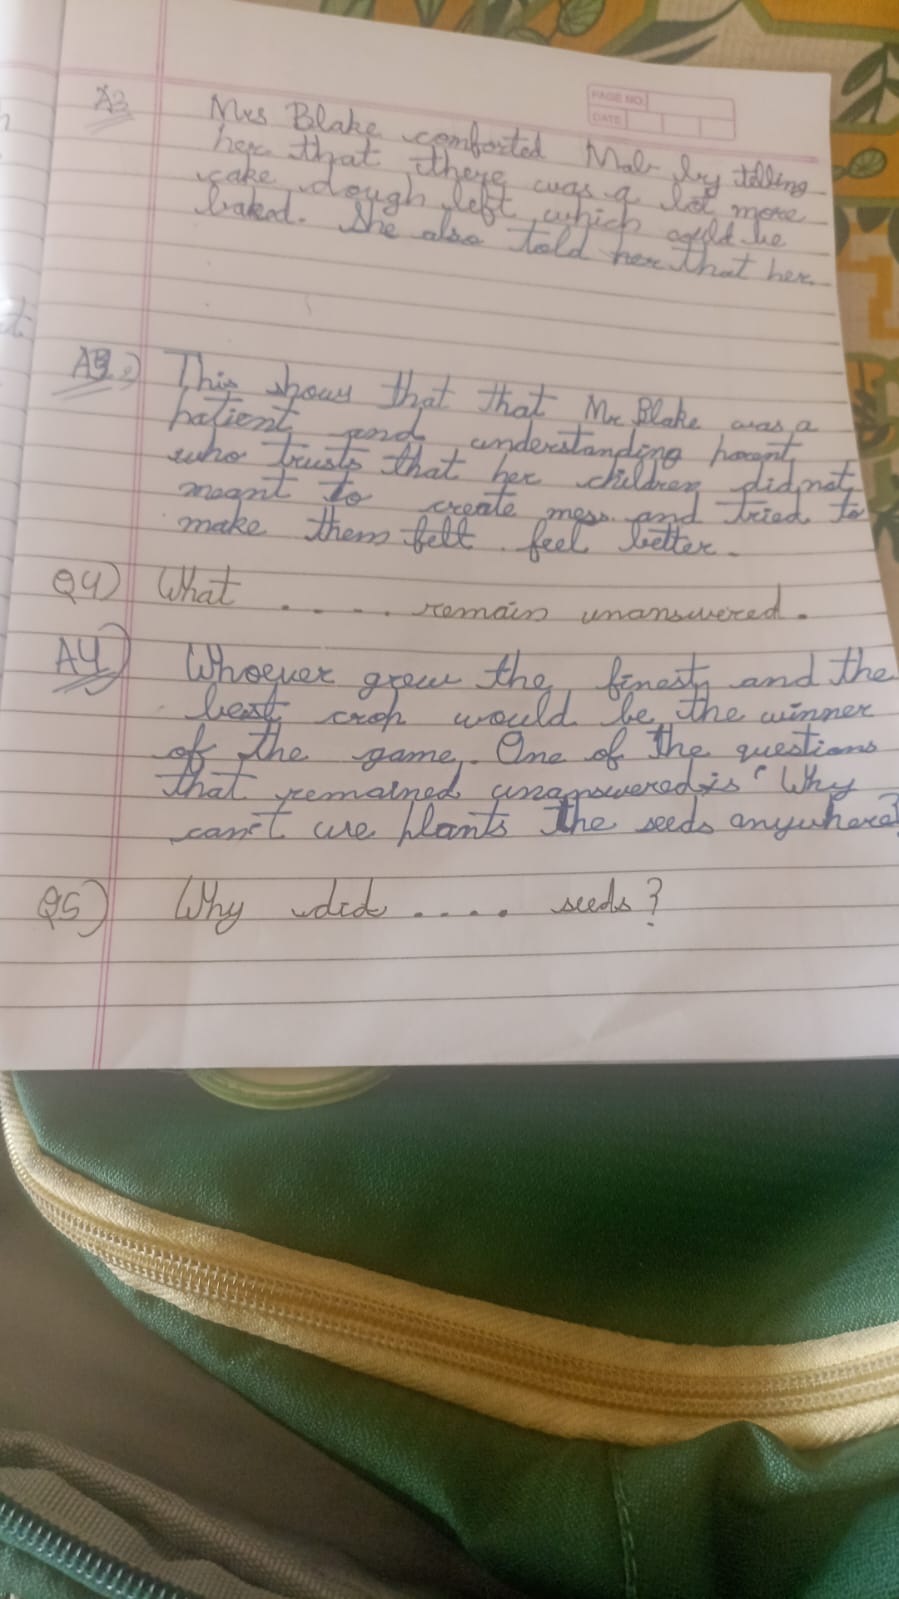 PAGE NO.
DATE
A3 Mrs Blake comforted Mab by telling
her that there was a lot more
cake dough left which could be
baked. She also told her that her
A3) This shows that that Mr Blake was a
patient and understanding parent
who trusts that her children did not
meant to create mess and tried to
make them felt feel better.
Q4) What .... remain unanswered.
A4) Whoever grew the finest and the
best crop would be the winner
of the game. One of the questions
that remained unanswered is "Why
can't we plants the seeds anywhere?
Q5) Why did .... seeds?